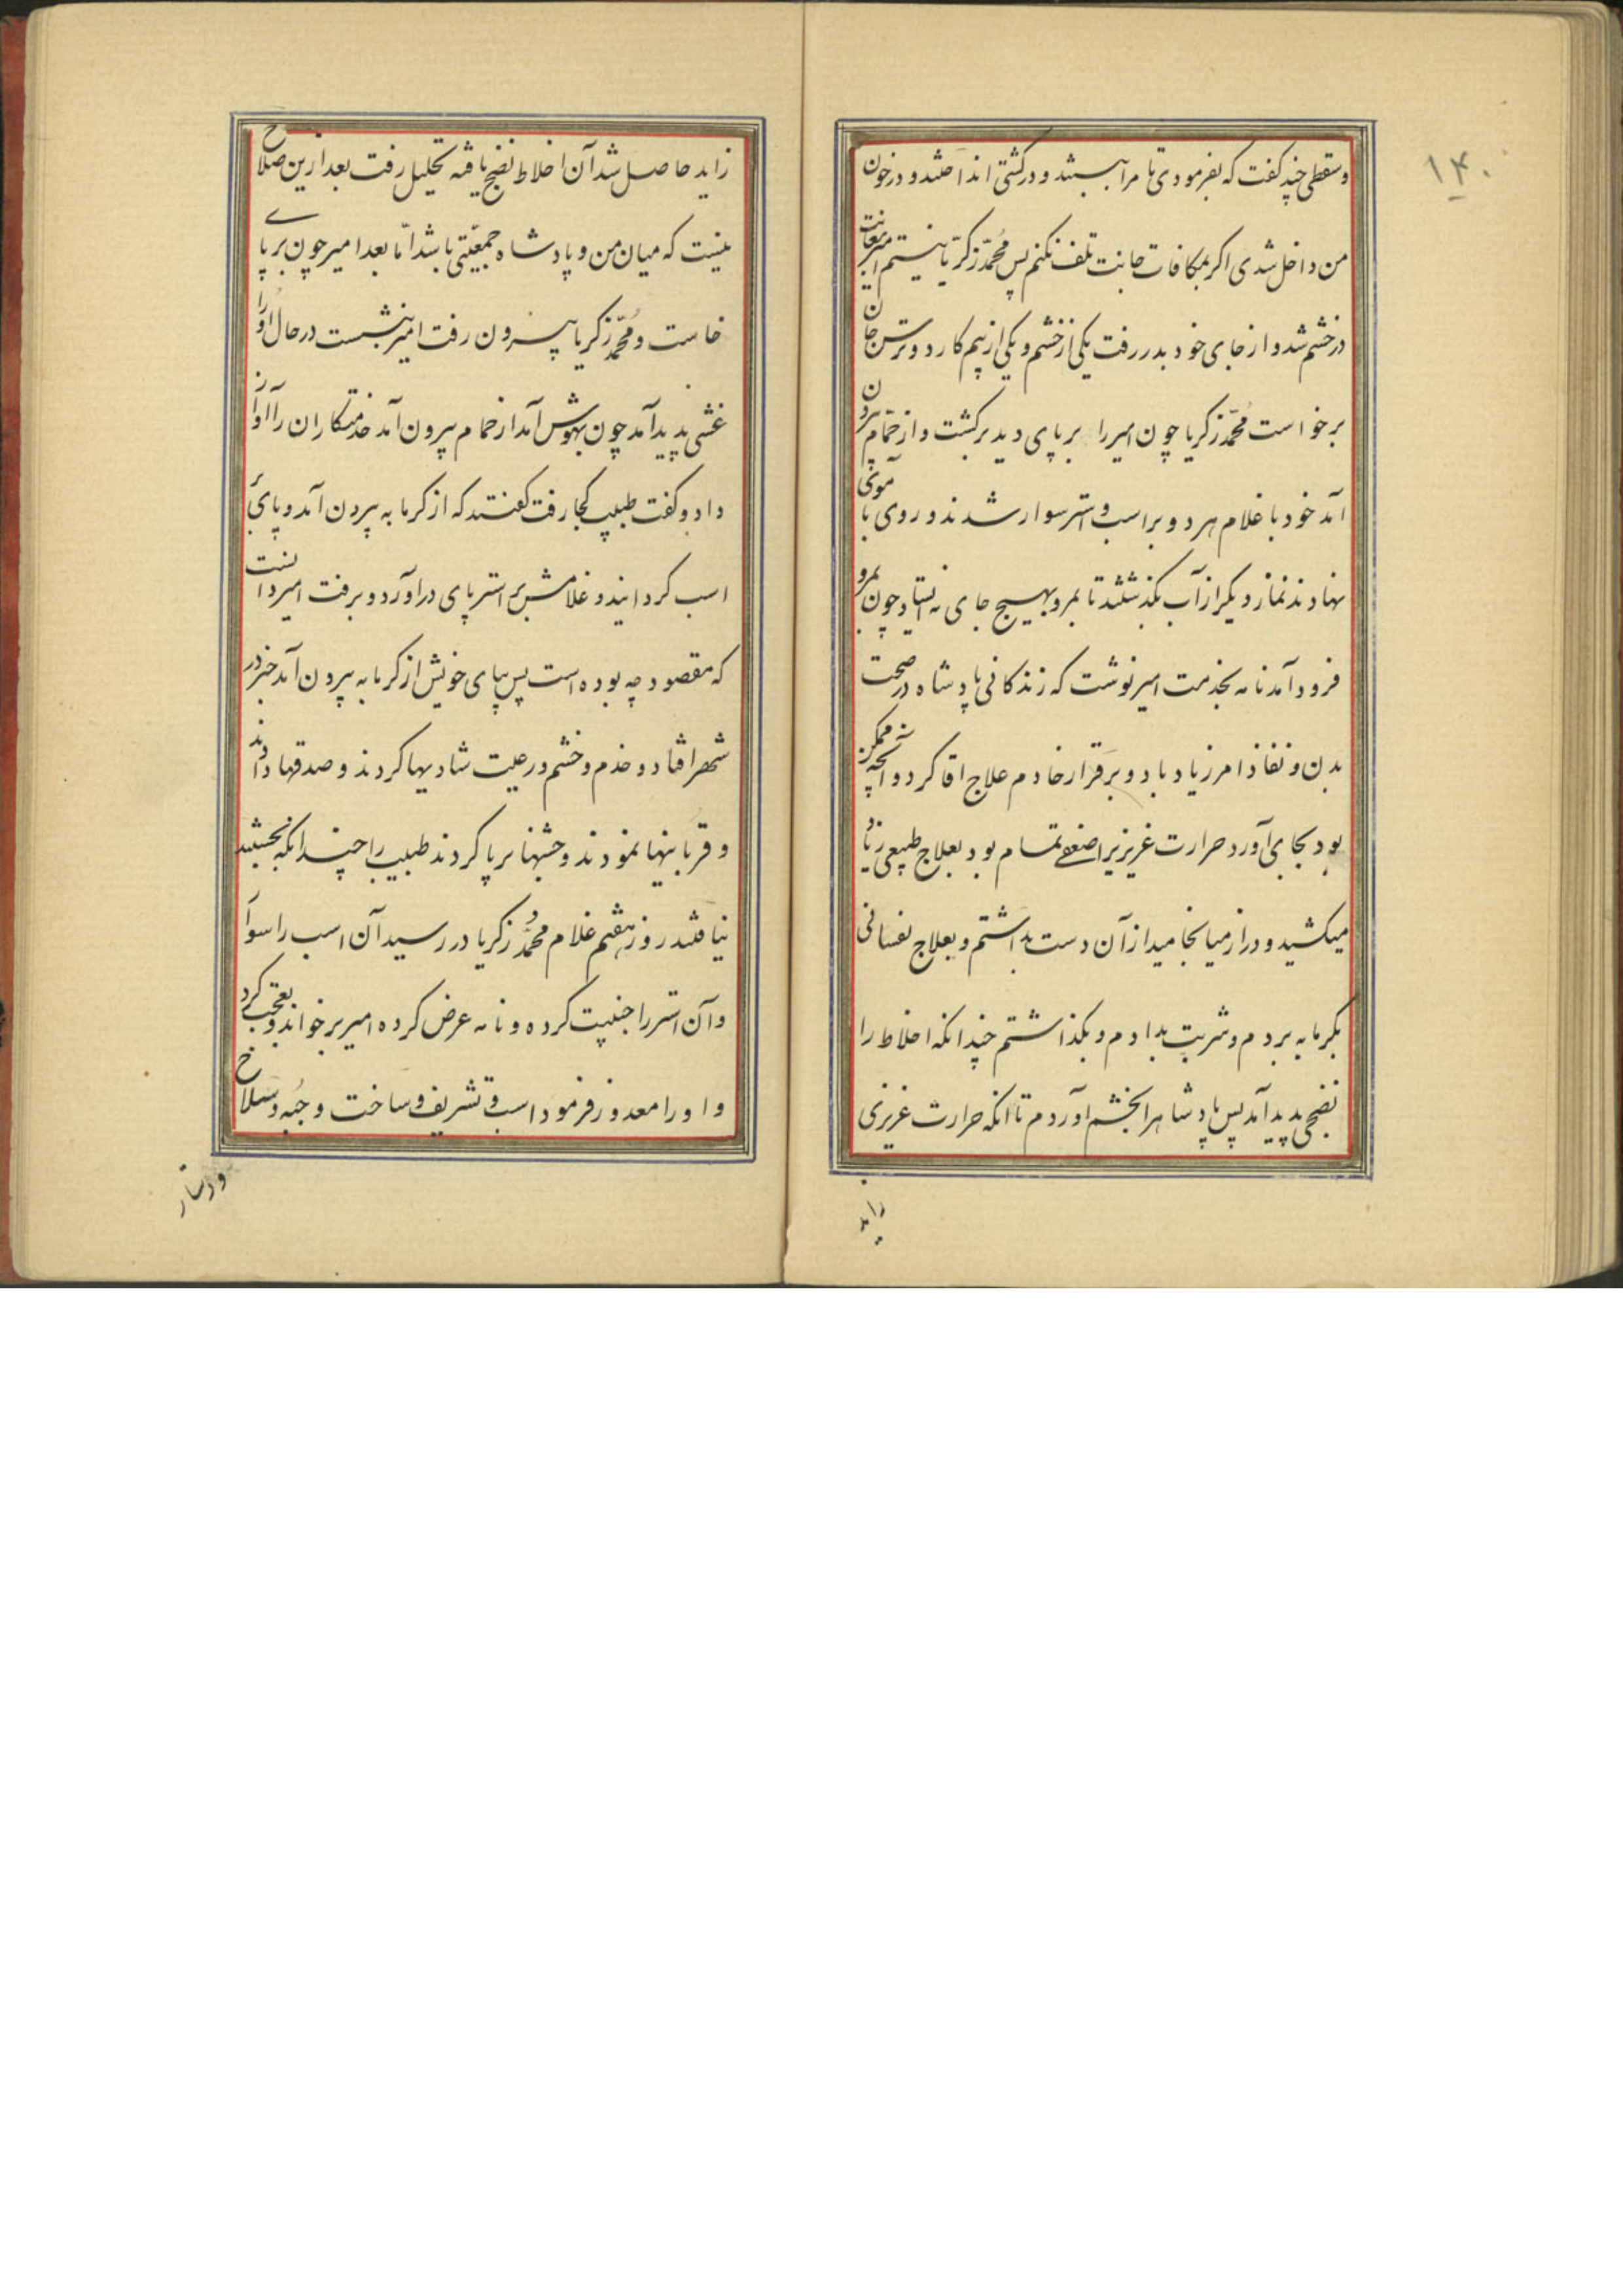 ۱۴۰
وسقطی چند کفت که بفرمودی تا مرا ببستند و در کشتی انداختند و در خون
من داخل شدی اکر بمکافات جانت تلف نکنم پس محمّد زکریّا نیستم امیر بغایت
در خشم شد و از جای خود بدر رفت یکی از خشم و یکی از بیم کارد و ترس جان
برخواست محمّد زکریا چون امیر را بر پای دید برکشت و از حمّام بیرون
آمد خود با غلام هر دو بر اسب و استر سوار شدند و روی بآموی
نهادند نماز دیکر از آب بکذشتند تا بمرو بهیچ جای نه ایستاد چون بمرو
فرود آمد نامه بخدمت امیر نوشت که زندکانی پادشاه در صحت
بدن و نفاذ امر زیاد باد و برقرار خادم علاج اقا کرد و آنچه ممکن
بود بجای آورد حرارت غریزیرا ضعفی تمام بود بعلاج طبیعی زیاد
میکشید و دراز میانجامید از آن دست بداشتم و بعلاج نفسانی
بکرمابه بردم و شربت بدادم و بکذاشتم چندانکه اخلاط را
نضجی پدید آمد پس پادشاهرا بخشم آوردم تا انکه حرارت غریزی
زاید
زاید حاصل شد آن اخلاط نضج یافته تحلیل رفت بعد ازین صلاح
نیست که میان من و پادشاه جمعیّتی باشد امّا بعد امیر چون بر پای
خاست و محمّد زکریا بیرون رفت امیر بنشست در حال او را
غشی پدید آمد چون بهوش آمد از حمام بیرون آمد خدمتکاران را آواز
داد و کفت طبیب کجا رفت کفتند که از کرمابه بیرون آمد و پای بر
اسب کردانید و غلامش بر استر پای دراورد و برفت امیر دانست
که مقصود چه بوده است پس بپای خویش از کرمابه بیرون آمد خبر در
شهر افتاد و خدم و خشم و رعیت شادیها کردند و صدقها دادند
و قربانیها نمودند و جشنها برپا کردند طبیب را چندانکه بجستند
نیافتند روز هفتم غلام محمّد زکریا در رسید آن اسب را سوار
و آن استر را جنیبت کرده و نامه عرض کرده امیر برخواند و تعجب کرد
و او را معذور فرمود اسب و تشریف و ساخت و جُبه و سلاح
و دستار